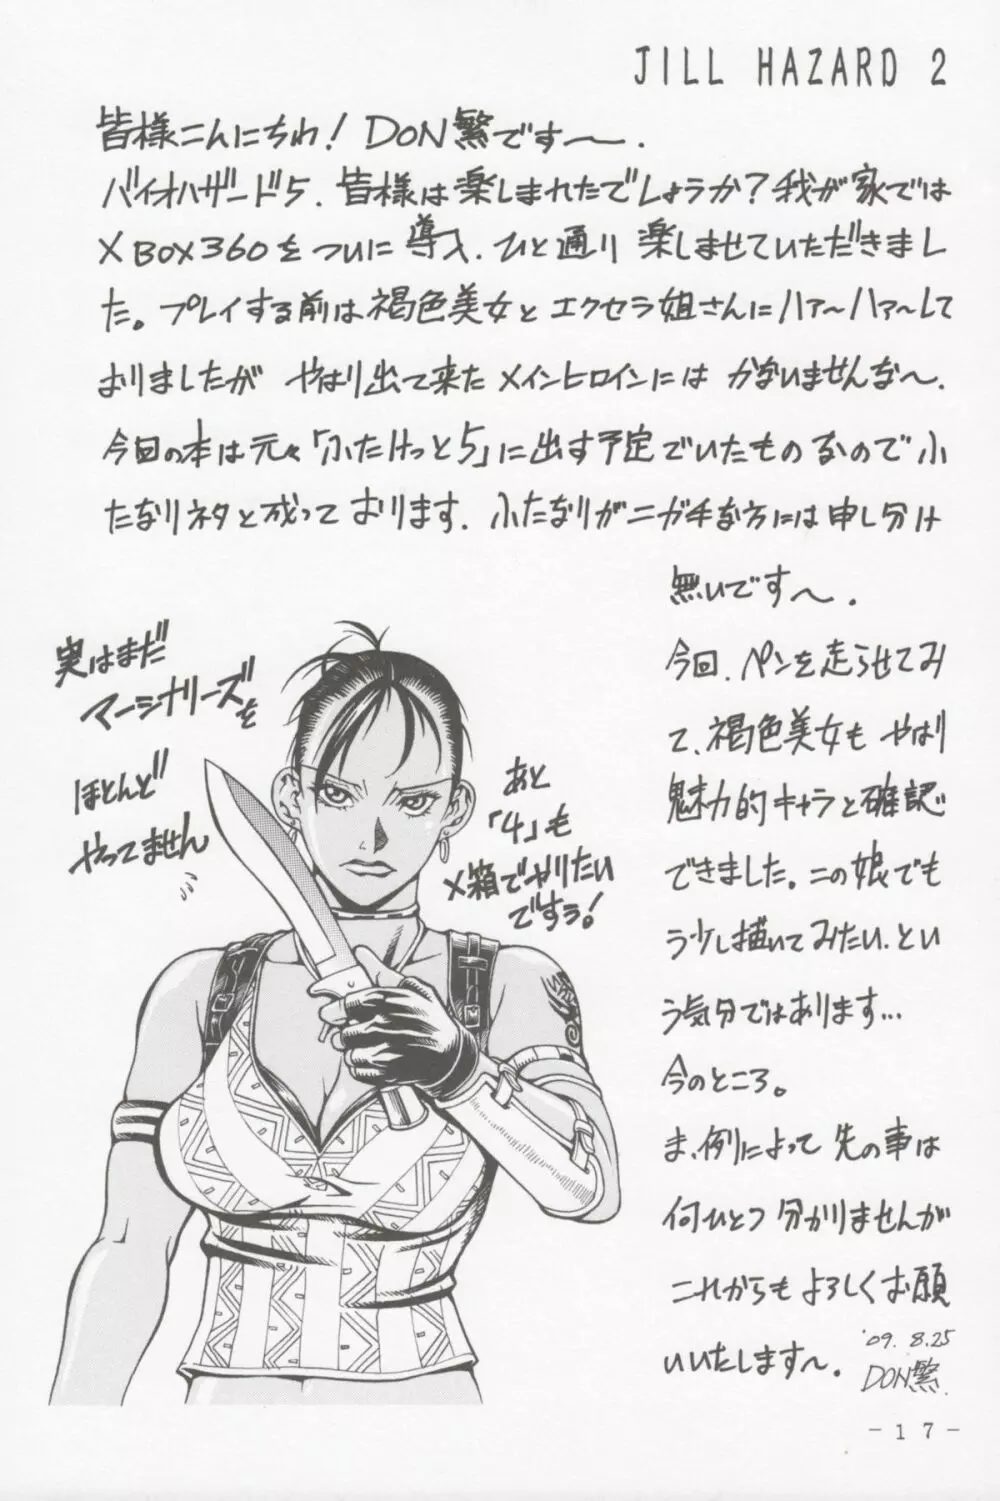 JILL HAZARD 2
皆様こんにちわ!DON繁です〜.
バイオハザード5.皆様は楽しまれたでしょうか?我が家では
XBOX360をついに導入.ひと通り楽しませていただきまし
た。プレイする前は褐色美女とエクセラ姐さんにハァ〜ハァ〜して
おりましたが やはり出て来たメインヒロインには かないませんな〜.
今回の本は元々「ふたけっと5」に出す予定でいたものなのでふ
たなりネタと成っております.ふたなりがニガ手な方には申し分け
無いです〜.
今回.ペンを走らせてみ
て.褐色美女も やはり
魅力的キャラと確認
できました。この娘でも
う少し描いてみたい.とい
う気分ではあります…
今のところ。
ま、例によって 先の事は
何ひとつ 分かりませんが
これからも よろしくお願
いいたします〜.
'09. 8.25
DON繁.
実はまだ
マーシナリーズを
ほとんど
やってません
あと
「4」も
X箱でやりたい
ですぅ!
-17-